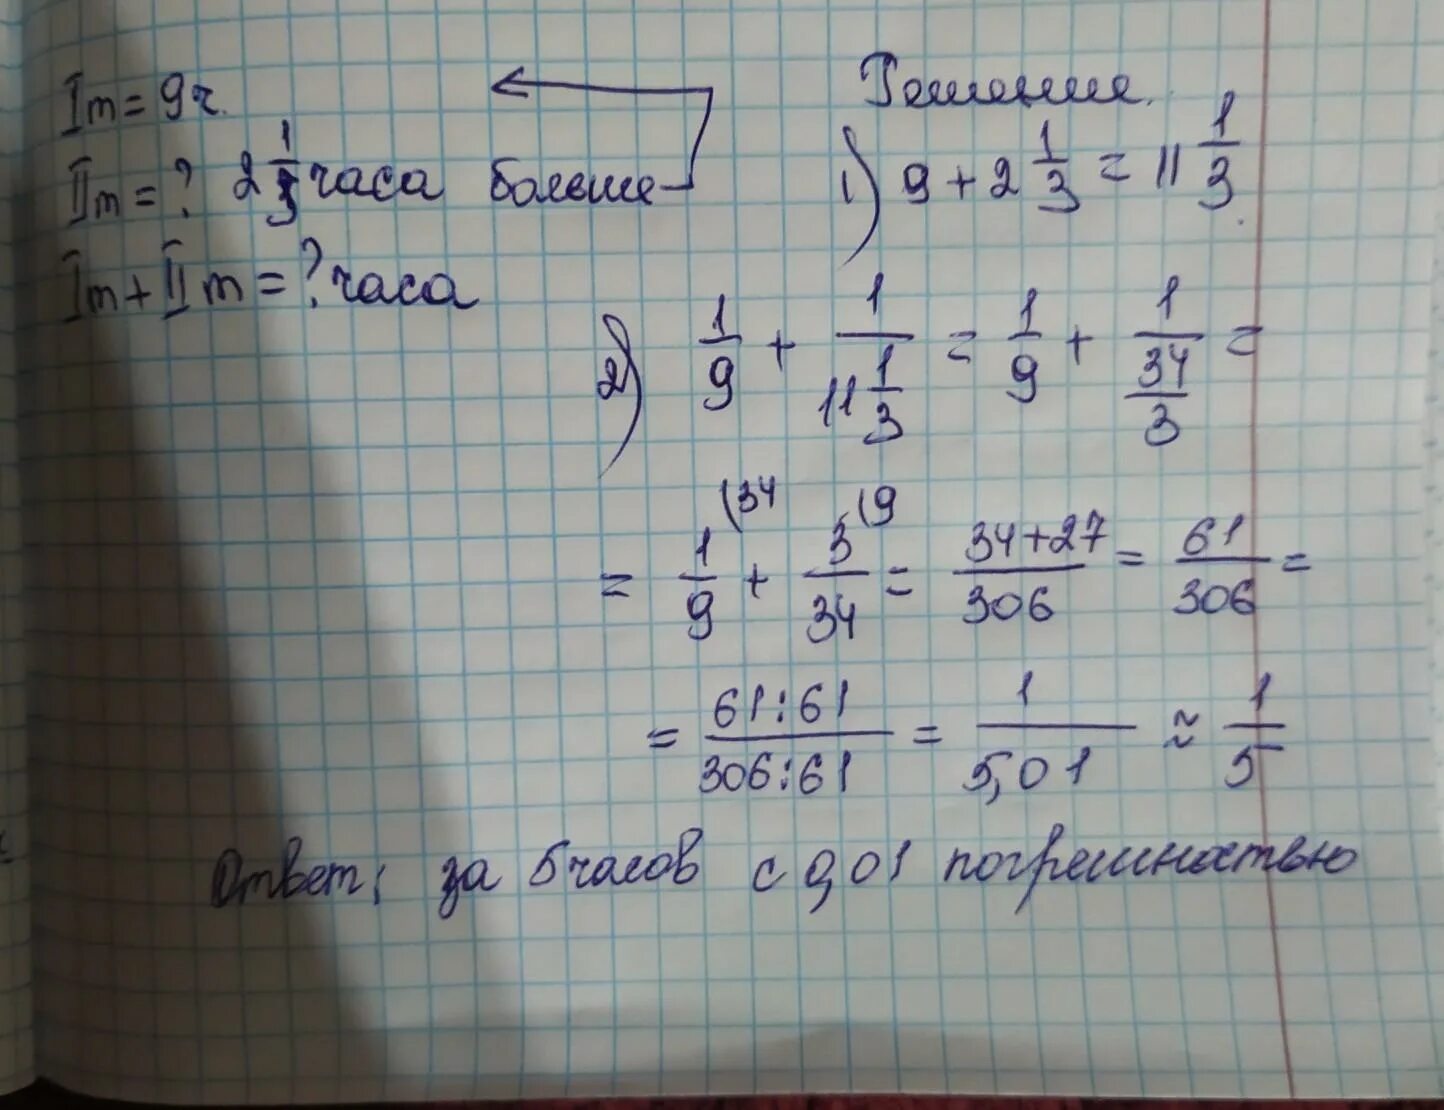 I т = 9 ч.
II т = ? 2 1/3 часа больше
I т + II т = ? часа
Решение.
1) 9 + 2 1/3 = 11 1/3.
2) 1/9 + 1/(11 1/3) = 1/9 + 1/(34/3) =
= 1/9 (34 + 3/34 (9 = (34+27)/306 = 61/306 =
= (61:61)/(306:61) = 1/5,01 ≈ 1/5
Ответ: за 5 часов с 0,01 погрешностью